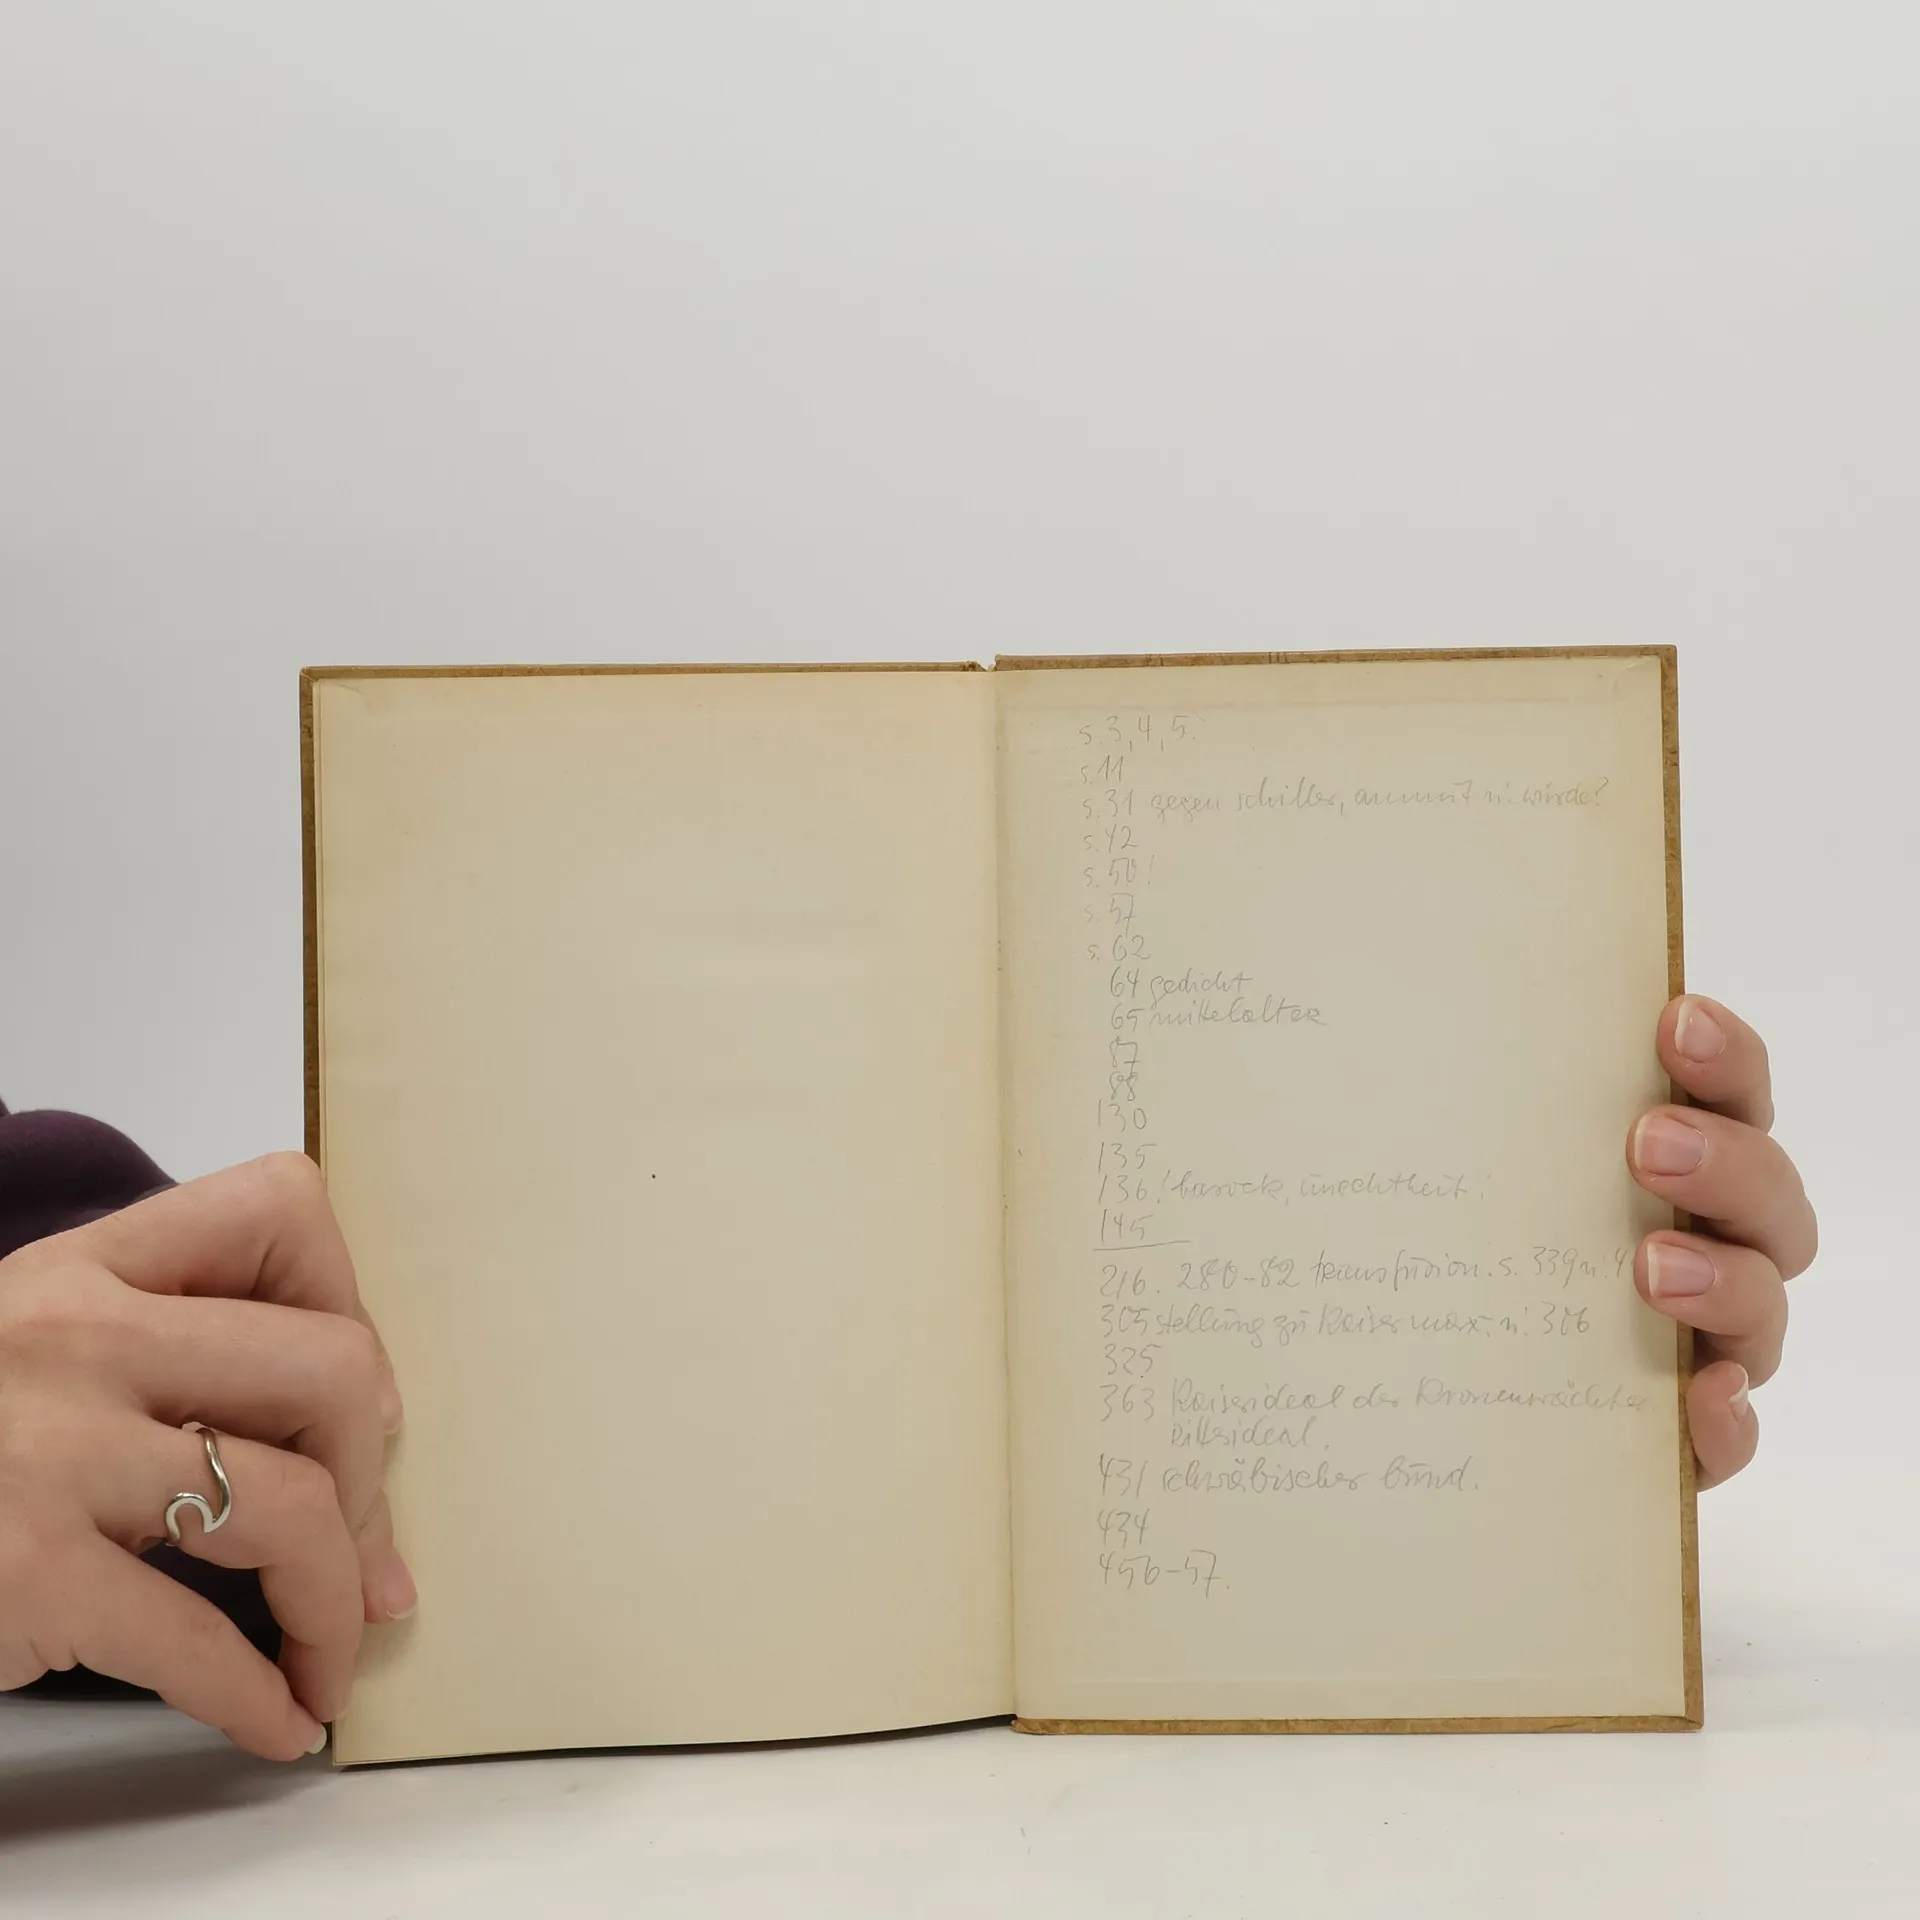 s. 3, 4, 5.
s. 11
s. 31 gegen schiller, anmut u. würde?
s. 42
s. 50!
s. 57
s. 62
64 gedicht
65 mittelalter
87
88
130
135
136! barock, unechtheit!
145
216. 280-82 transfusion. s. 339 u. 4
305 stellung zu Kaiser max. u. 306
325
363 Kaiserideal der Kronenwächter.
Ritterideal.
431 schwäbischer bund.
434
456-57.